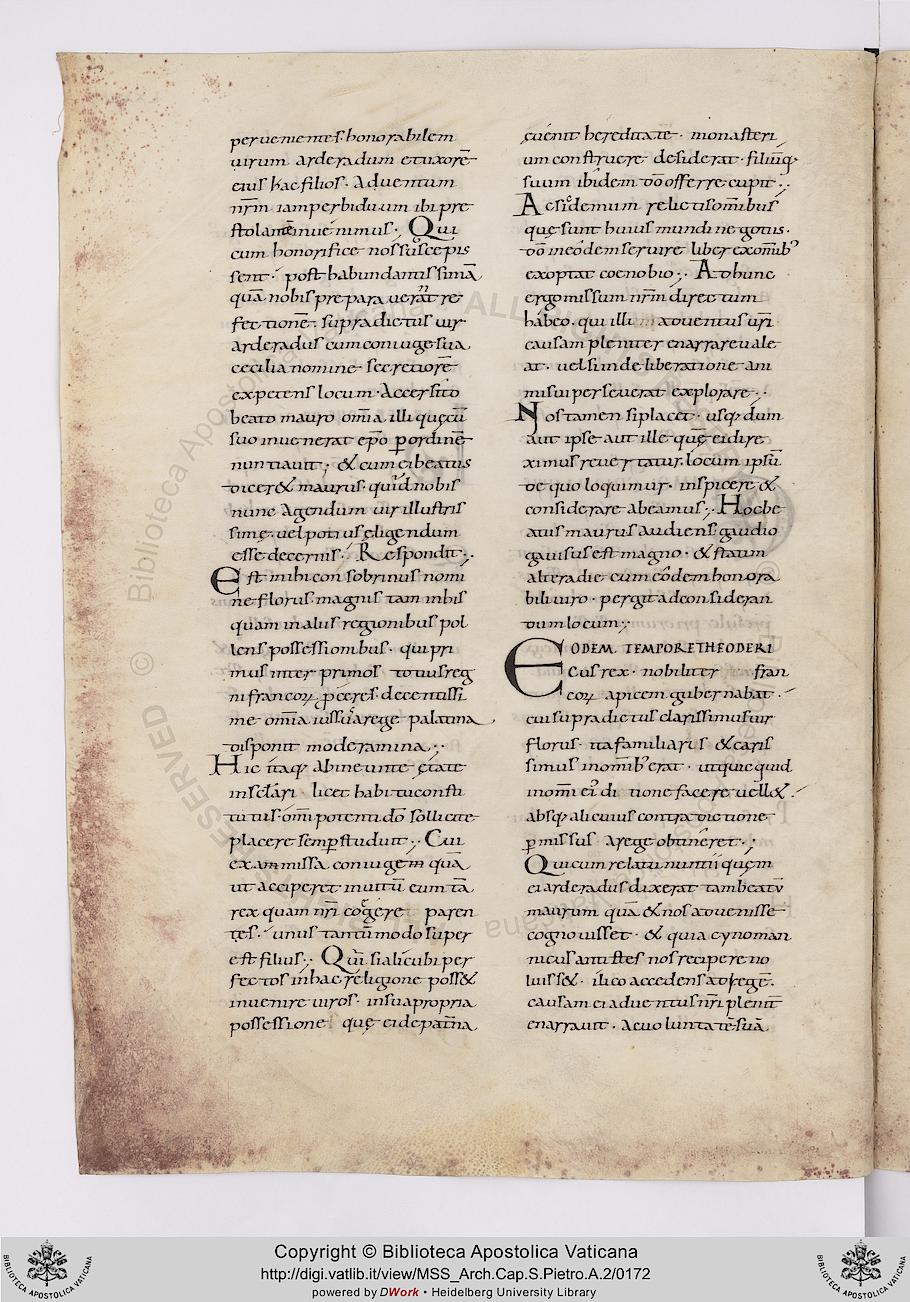 peruenientes honorabilem
uirum arderadum et uxorē
eius hac filios · Aduentum
nr̄m iam per biduum ibi pre
stolantē inuenimus · Qui
cum honorifice nos suscepis
sent · post habundantissimā
quā nobis preparauerat re
fectionē · supradictus uir
arderadus cum coniuge sua
cecilia nomine secretiorē
expetens locum · Accersito
beato mauro om̄ia illi quęcū
suo inuenerat ep̄o ꝑ ordinē
nuntiauit ; & cum ei beatus
dicer& maurus · quid nobis
nunc Agendum uir illustris
simę · uel potius eligendum
esse decernis · Respondit ·
Est mihi consobrinus nomi
ne florus · magnis tam in his
quam in aliis regionibus pol
lens possessionibus · qui pri
mus inter primos totius reg
ni francoꝝ ꝓceres · decentissi
me om̄ia iussu a rege palatina
disponit moderamina ·
Hic itaq; ab ineunte ętate
in sclari · licet habitu consti
tutus · om̄ipotenti dō sollicite
placere semꝑ studuit · Cui
ex ammissa coniugem quā
ut acciperet inuitū eum tā
rex quam nr̄i cogere paren
tes · unus tantūmodo super
est filius · Qui si alicubi per
fectos in hac religione poss&
inuenire uiros · in sua propria
possessione quę ei de pat̄na
euenit hereditate · monasteri
um construere desiderat · filiūq;
suum ibidem dō offerre cupit ·
Ac sidemum relictis om̄ibus
quę sunt huius mundi negotiis ·
dō in eodem seruire liber ex om̄ib;
exoptat coenobio · Ad hunc
ergo missum nr̄m directum
habeo · qui illi aduentus ur̄i
causam pleniter enarrare uale
at · uel si in deliberatione ani
mi sui perseuerat explorare ·
Nos tamen si placet · usq; dum
aut ipse aut ille quę ei dire
ximus reuertatur · locum ipsū
de quo loquimur · inspicere &
considerare abeamus · Hoc be
atus maurus audiens · gaudio
gauisus est magno · & statim
altera die cum eodem honora
bili uiro · pergit ad consideran
dum locum ;
EODEM TEMPORE THEODERI
cus rex · nobiliter fran
coꝝ apicem gubernabat ·
cui supradictus clarissimus uir
florus · ita familiaris & caris
simus in om̄ib; erat · ut quicquid
in om̄i ei ditione facere uell& ·
absq; alicuius contradictione
ꝑmissus a rege obtineret ·
Qui cum relatu nuntii quęm
ei arderadus dixerat tam beatū
maurum quā & nos aduenisse
cognouisset · & quia cynoman
nicus antistes nos recipere no
luiss& · ilico accedens ad regē ·
causam ei aduentus nr̄i plenit̄
enarrauit · Ac uoluntatē suā
Copyright © Biblioteca Apostolica Vaticana
http://digi.vatlib.it/view/MSS_Arch.Cap.S.Pietro.A.2/0172
powered by DWork • Heidelberg University Library